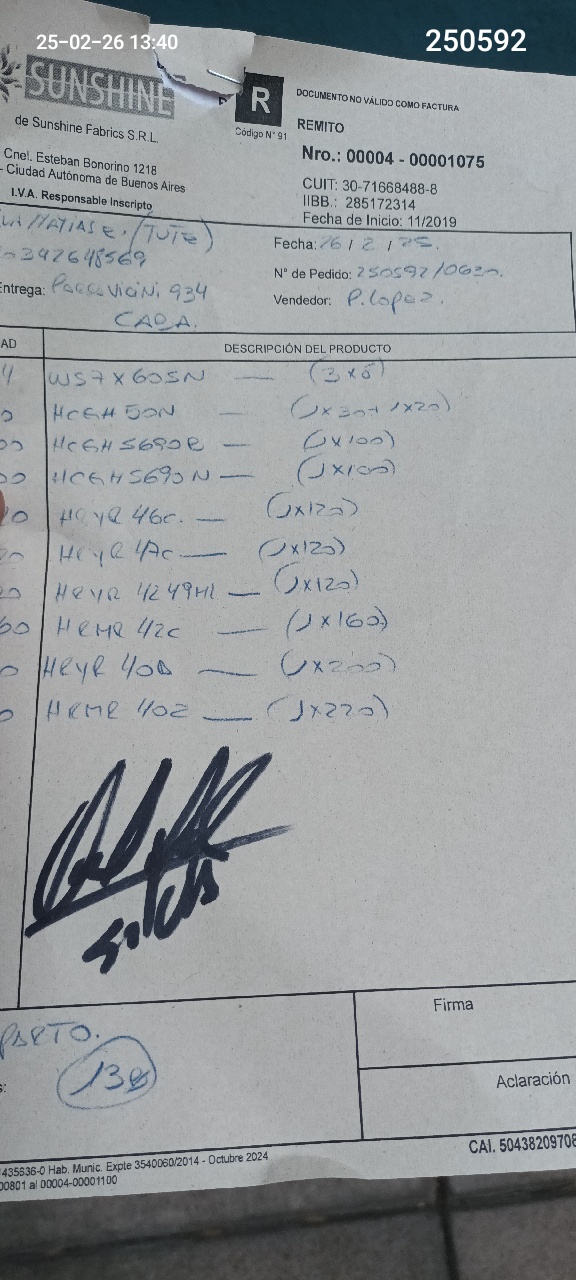 25-02-26 13:40
250592
SUNSHINE
de Sunshine Fabrics S.R.L.
Cnel. Esteban Bonorino 1218
- Ciudad Autónoma de Buenos Aires
I.V.A. Responsable Inscripto
R
Código N° 91
DOCUMENTO NO VÁLIDO COMO FACTURA
REMITO
Nro.: 00004 - 00001075
CUIT: 30-71668488-8
IIBB.: 285172314
Fecha de Inicio: 11/2019
MATIAS E. (TUTE)
392648569
Entrega: 934
CABA.
Fecha: 26 / 2 / 25.
N° de Pedido: 250592/
Vendedor: P. Lopez.
AD
DESCRIPCIÓN DEL PRODUCTO
4 WS7 X 60SN — (3x8)
0 HCGH 50N — (1x30+1x20)
00 HCGHS690R — (1x100)
00 HCGHS690N — (1x100)
20 HRYR 46C. — (1x120)
20 HRYR 47C — (1x120)
20 HRYR 4249H1 — (1x120)
60 HRMR 42C — (1x160)
0 HRYR 40D — (1x200)
0 HRMR 40Z — (1x220)
PARTO.
13B
Firma
Aclaración
435636-0 Hab. Munic. Exple 3540060/2014 - Octubre 2024
00801 al 00004-00001100
CAI. 50438209708